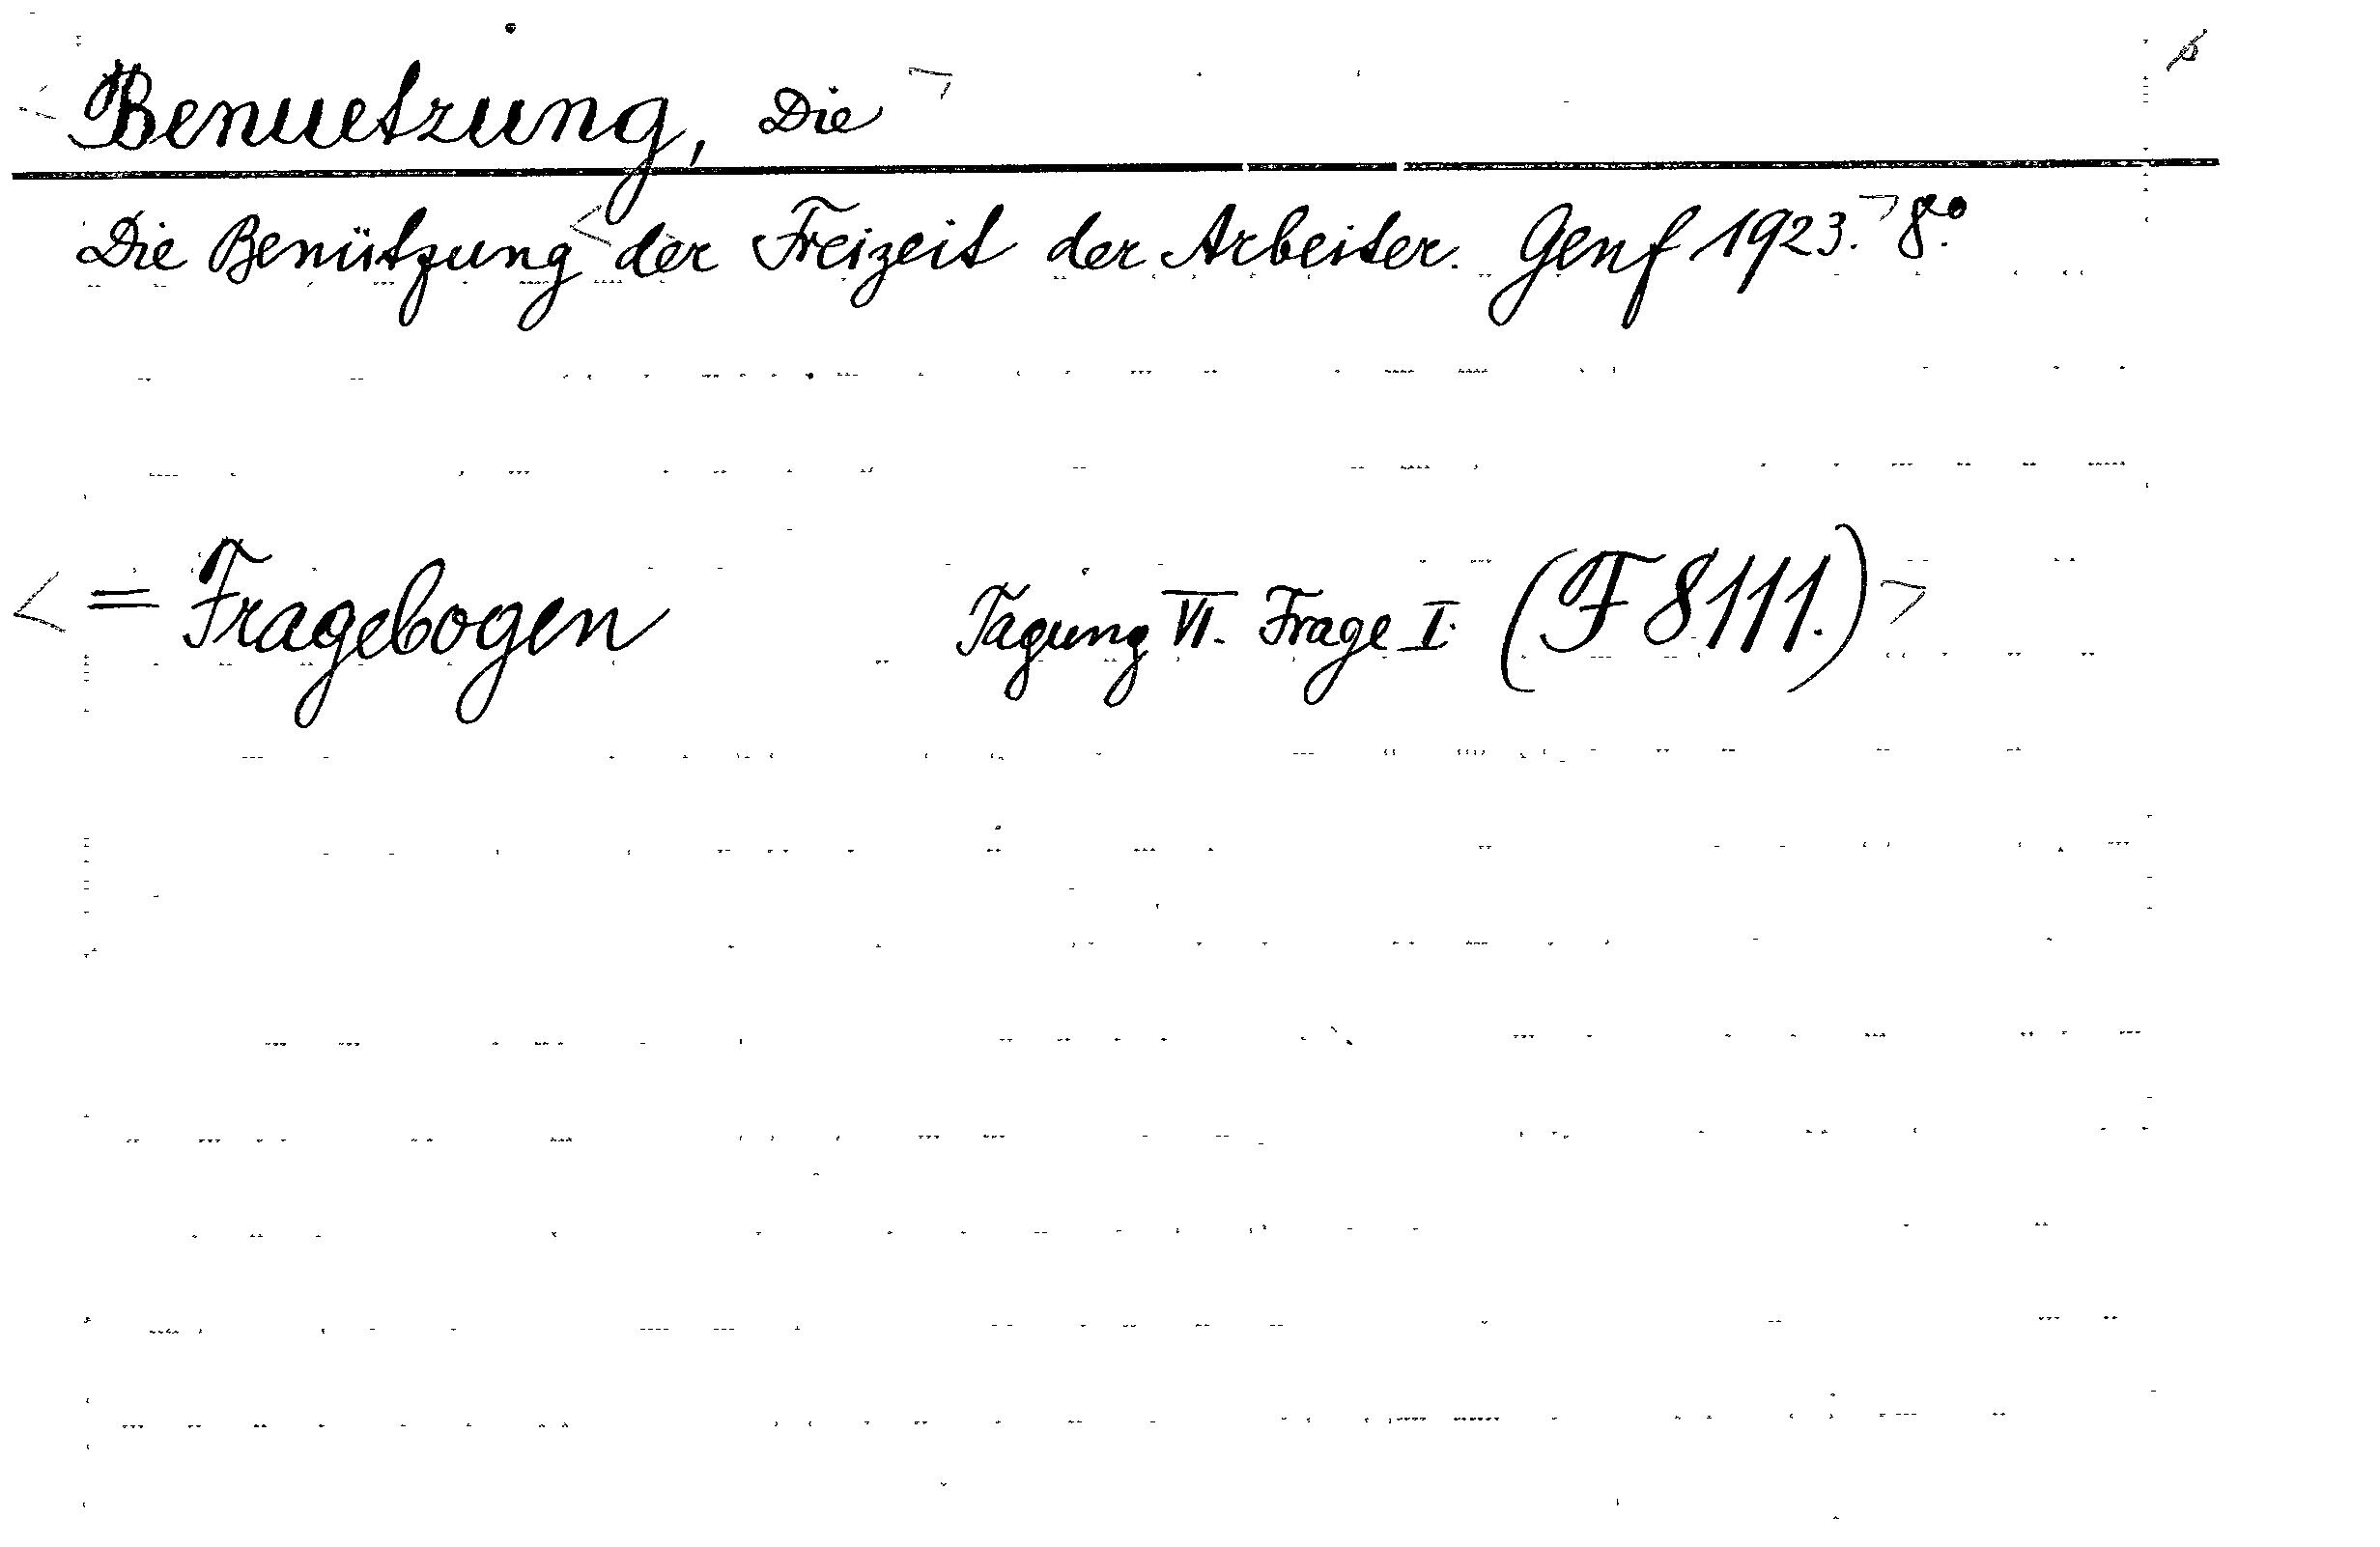 Benuetzung, Die
Die Benützung der Freizeit der Arbeiter. Genf 1923. 8°.
= Fragebogen Tagung VI. Frage I. (F 8111.)